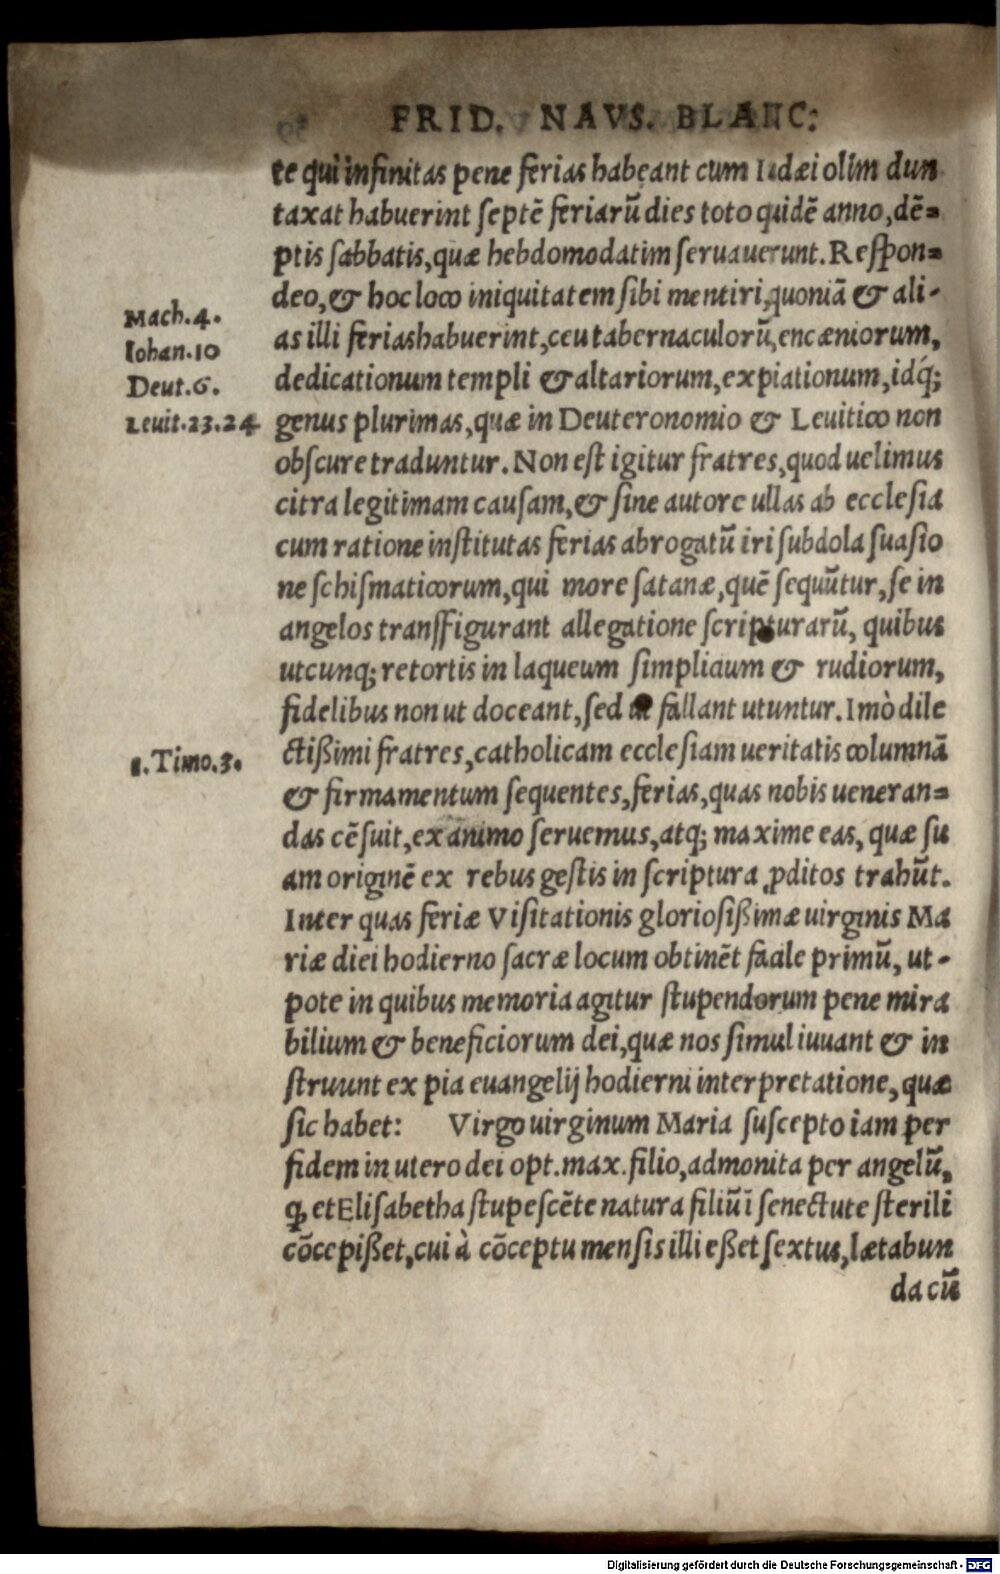 FRID. NAVS. BLANC:
te qui infinitas pene ferias habeant cum Iudæi olim dun
taxat habuerint septē feriarū dies toto quidē anno, dē=
ptis sabbatis, quæ hebdomodatim servaverunt. Respon=
deo, & hoc loco iniquitatem sibi mentiri, quoniā & ali-
as illi ferias habuerint, ceu tabernaculorū, encæniorum,
dedicationum templi & altariorum, expiationum, idq́;
genus plurimas, quæ in Deuteronomio & Levitico non
obscure traduntur. Non est igitur fratres, quod uelimus
citra legitimam causam, & sine autore ullas ab ecclesia
cum ratione institutas ferias abrogatū iri subdola suasio
ne schismaticorum, qui more satanæ, quē sequūtur, se in
angelos transffigurant allegatione scripturarū, quibus
utcunq; retortis in laqueum simplicium & rudiorum,
fidelibus non ut doceant, sed ut fallant utuntur. Imò dile
ctißimi fratres, catholicam ecclesiam ueritatis columnā
& firmamentum sequentes, ferias, quas nobis ueneran=
das cēsuit, ex animo seruemus, atq; maxime eas, quæ su
am originē ex rebus gestis in scriptura ꝓditos trahūt.
Inter quas feriæ Visitationis gloriosißimæ uirginis Ma
riæ diei hodierno sacræ locum obtinēt facile primū, ut-
pote in quibus memoria agitur stupendorum pene mira
bilium & beneficiorum dei, quæ nos simul iuuant & in
struunt ex pia euangelij hodierni interpretatione, quæ
sic habet: Virgo uirginum Maria suscepto iam per
fidem in utero dei opt. max. filio, admonita per angelū,
ꝙ et Elisabetha stupescēte natura filiū ī senectute sterili
cōcepißet, cui à cōceptu mensis illi eßet sextus, lætabun
da cū
Mach.4.
Iohan.10
Deut.6.
Leuit.23.24
1.Timo.3.
Digitalisierung gefördert durch die Deutsche Forschungsgemeinschaft - DFG